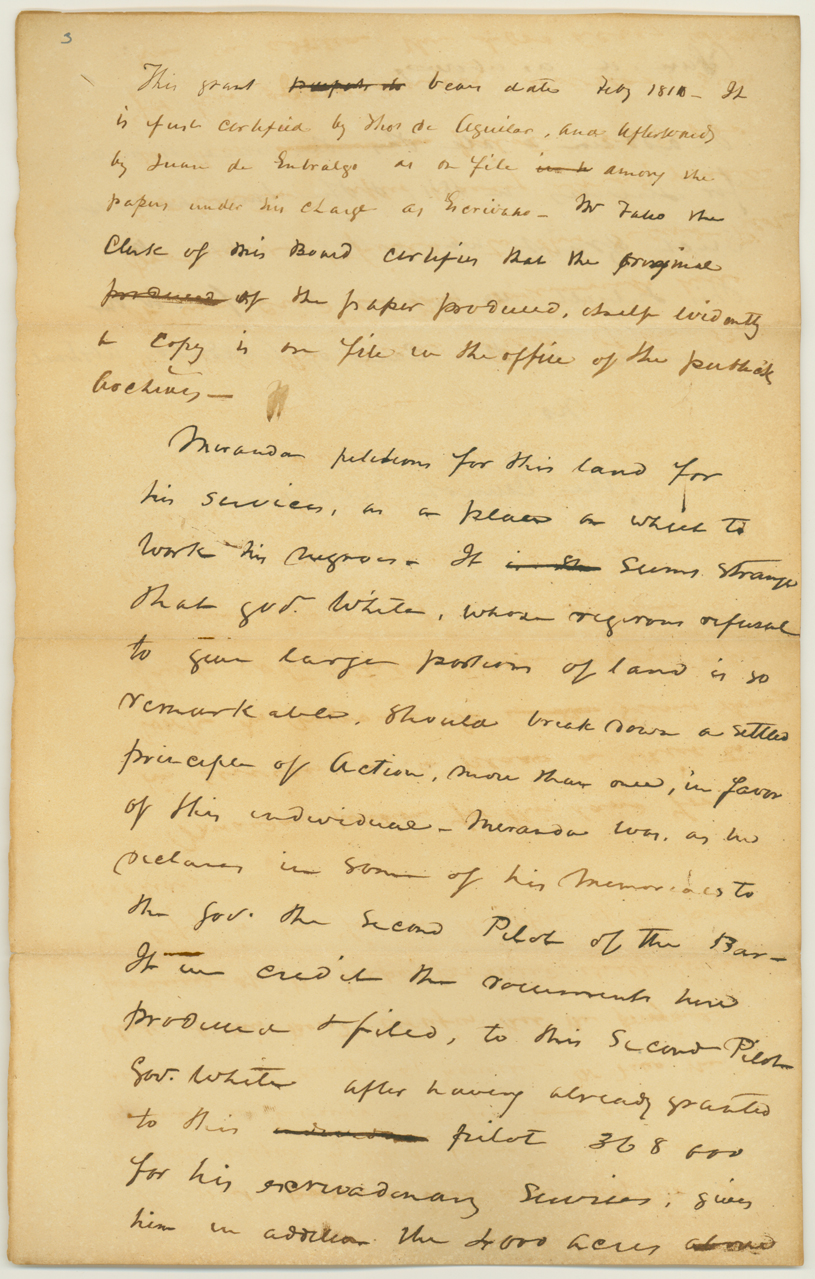 3
This grant purports to bears date Feby 1810 - It
is first certified by Thos de Aguilar, and afterwards
by Juan de Entralgo as on file among the
papers under his charge as Escrivano - Mr Fatio the
Clerk of this Board certifies that the original
produced of the paper produced, itself evidently
a copy is on file in the office of the publick
Archives -
Miranda petitions for this land for
his services, as a place on which to
work his negroes - It is seems strange
that gov. White, whose rigorous refusal
to give large portions of land is so
remarkable, should break down a settled
principle of Action, more than once, in favor
of this individual - Miranda was, as he
declares in some of his Memorials to
the Gov. the Second Pilot of the Bar -
If we credit the documents here
produced & filed, to this Second Pilot
Gov. White after having already granted
to this pilot 368 000
for his extraordinary Services, gives
him in addition the 4000 acres above